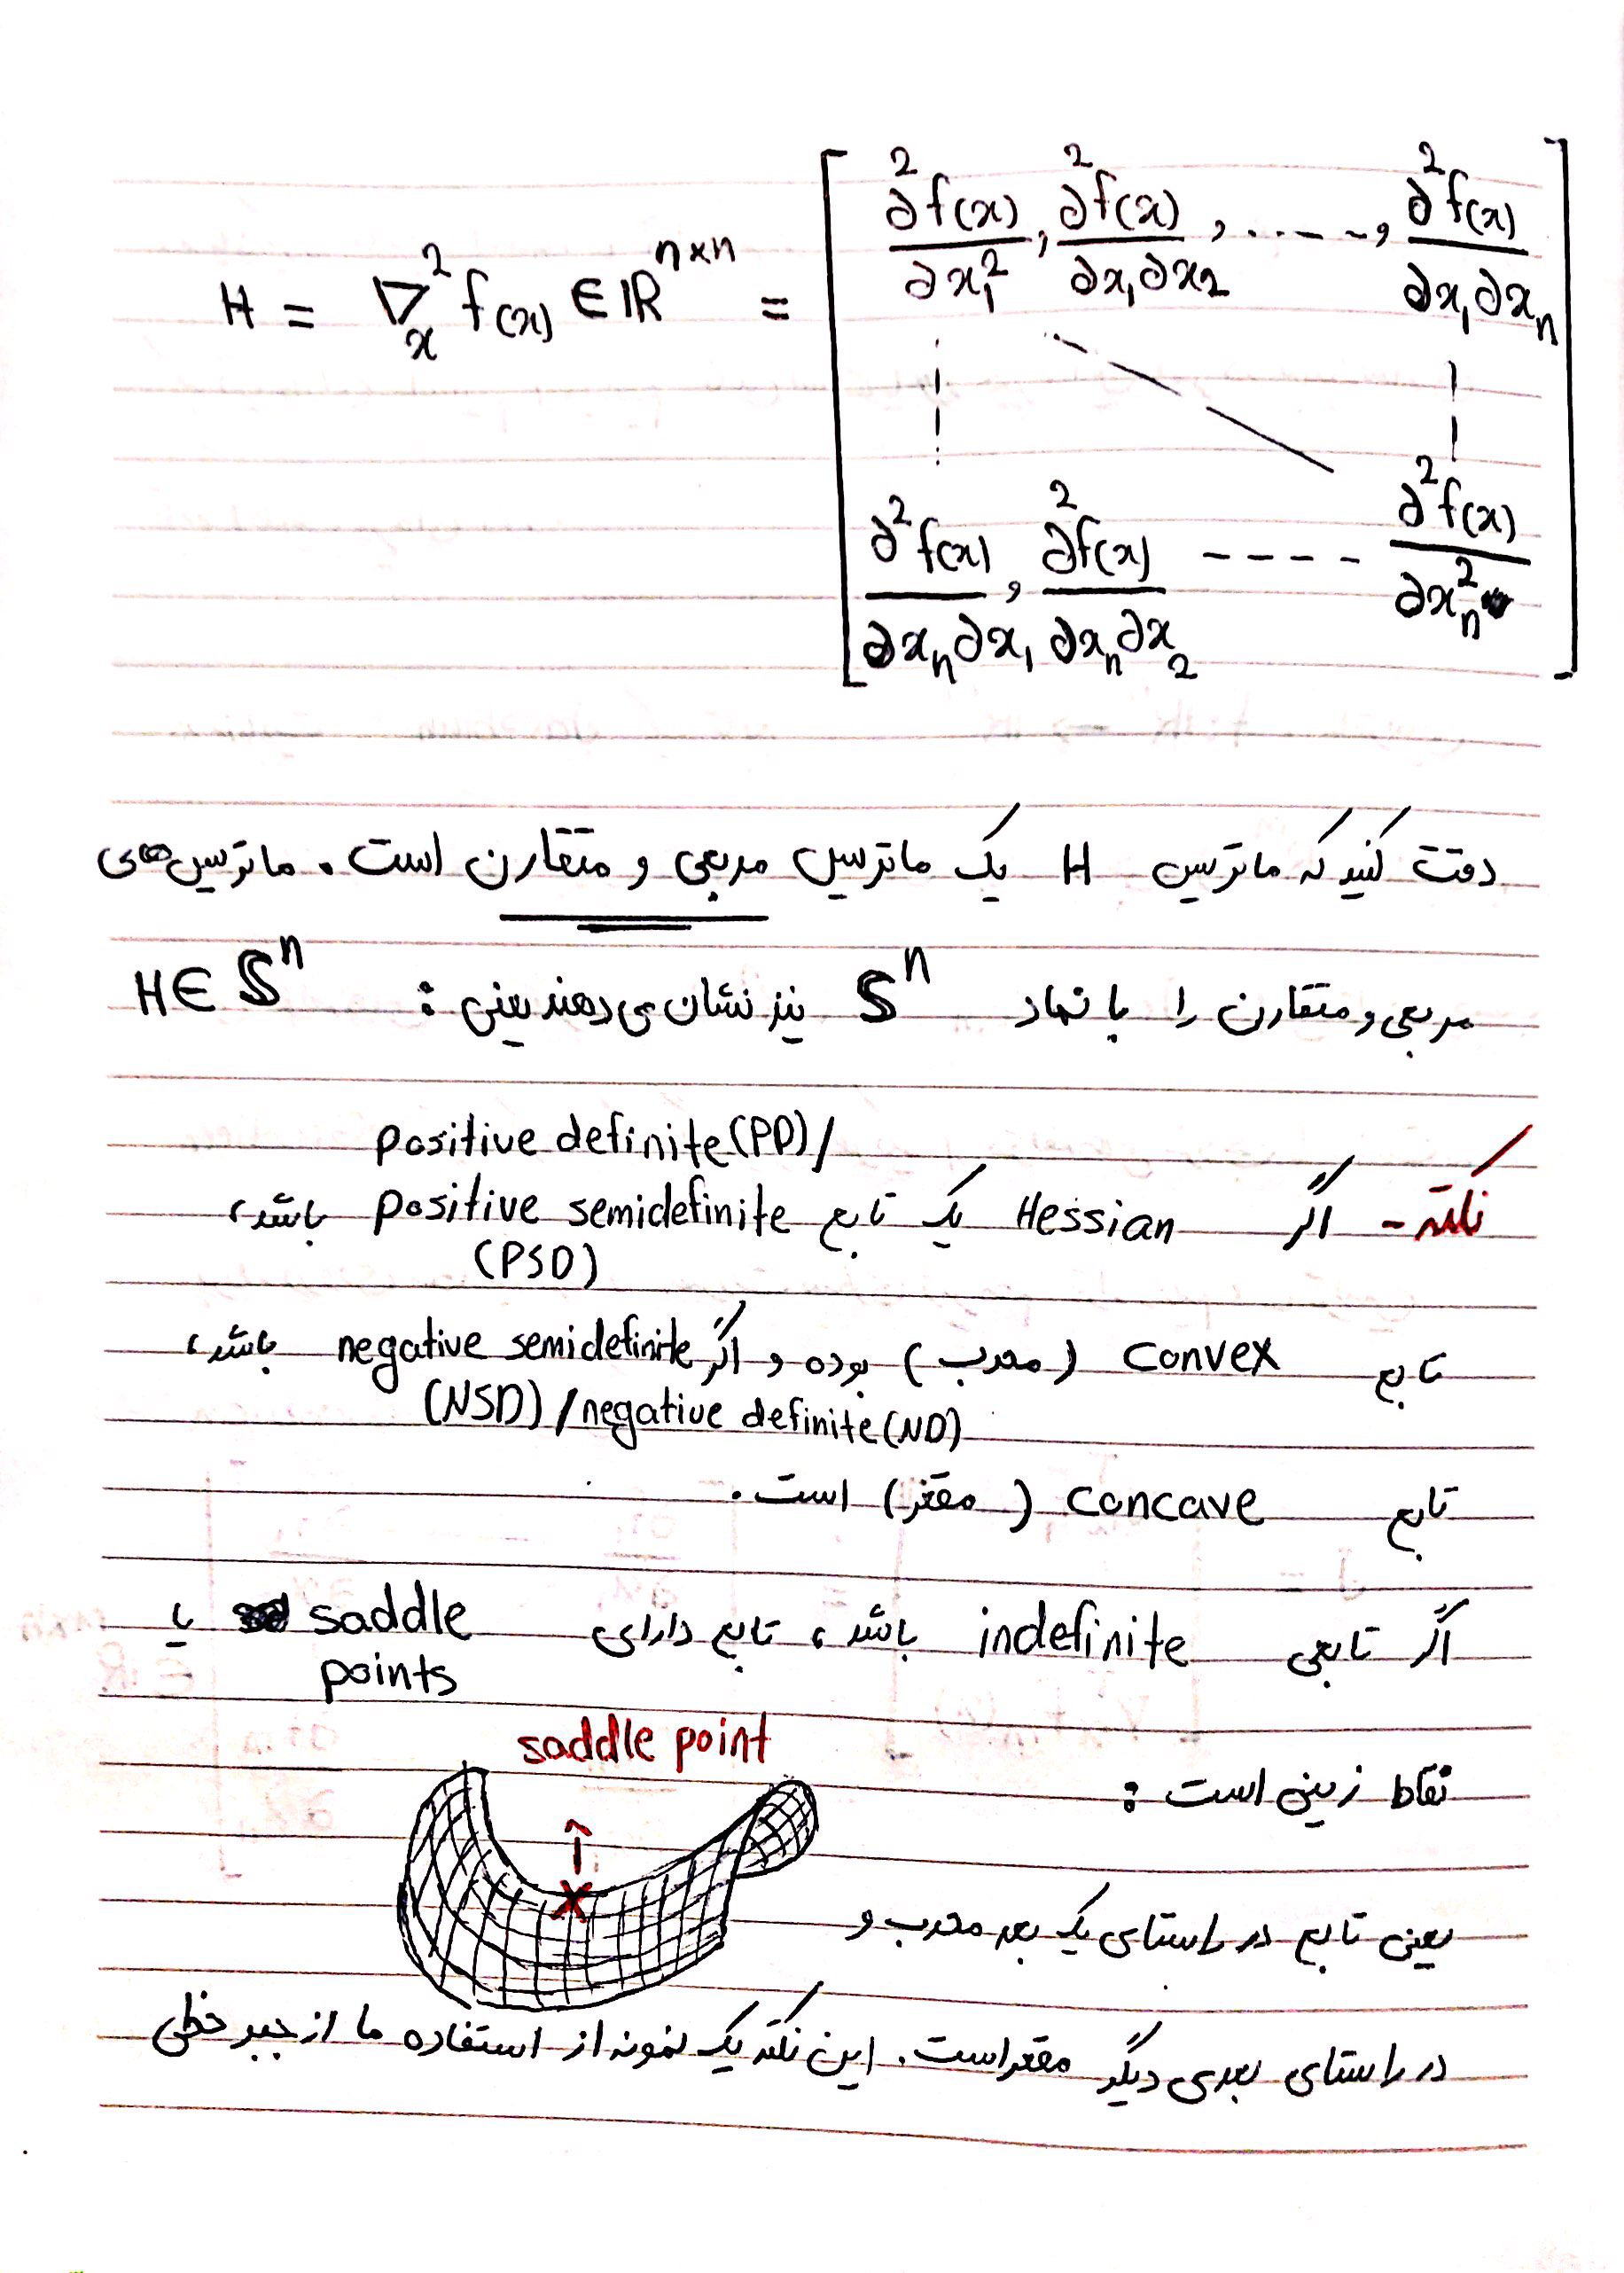 H = ∇²ₓ f(x) ∈ ℝⁿˣⁿ = [ ∂²f(x)/∂x₁² , ∂²f(x)/∂x₁∂x₂ , ..... , ∂²f(x)/∂x₁∂xₙ
∂²f(x)/∂xₙ∂x₁ , ∂²f(x)/∂xₙ∂x₂ ---- ∂²f(x)/∂xₙ² ]
دقت کنید که ماتریس H یک ماتریس مربعی و متقارن است. ماتریس‌های
مربعی و متقارن را با نماد 𝕊ⁿ نیز نشان می‌دهند یعنی : H ∈ 𝕊ⁿ
positive definite (PD)/
نکته - اگر Hessian یک تابع positive semidefinite باشد،
(PSD)
تابع convex (محدب) بوده و اگر negative semidefinite باشد،
(NSD) / negative definite (ND)
تابع concave (مقعر) است.
اگر تابعی indefinite باشد، تابع دارای saddle یا
points
saddle point
نقاط زینی است :
یعنی تابع در راستای یک بعد محدب و
در راستای بعدی دیگر مقعر است. این نکته یک نمونه از استفاده ما از جبر خطی